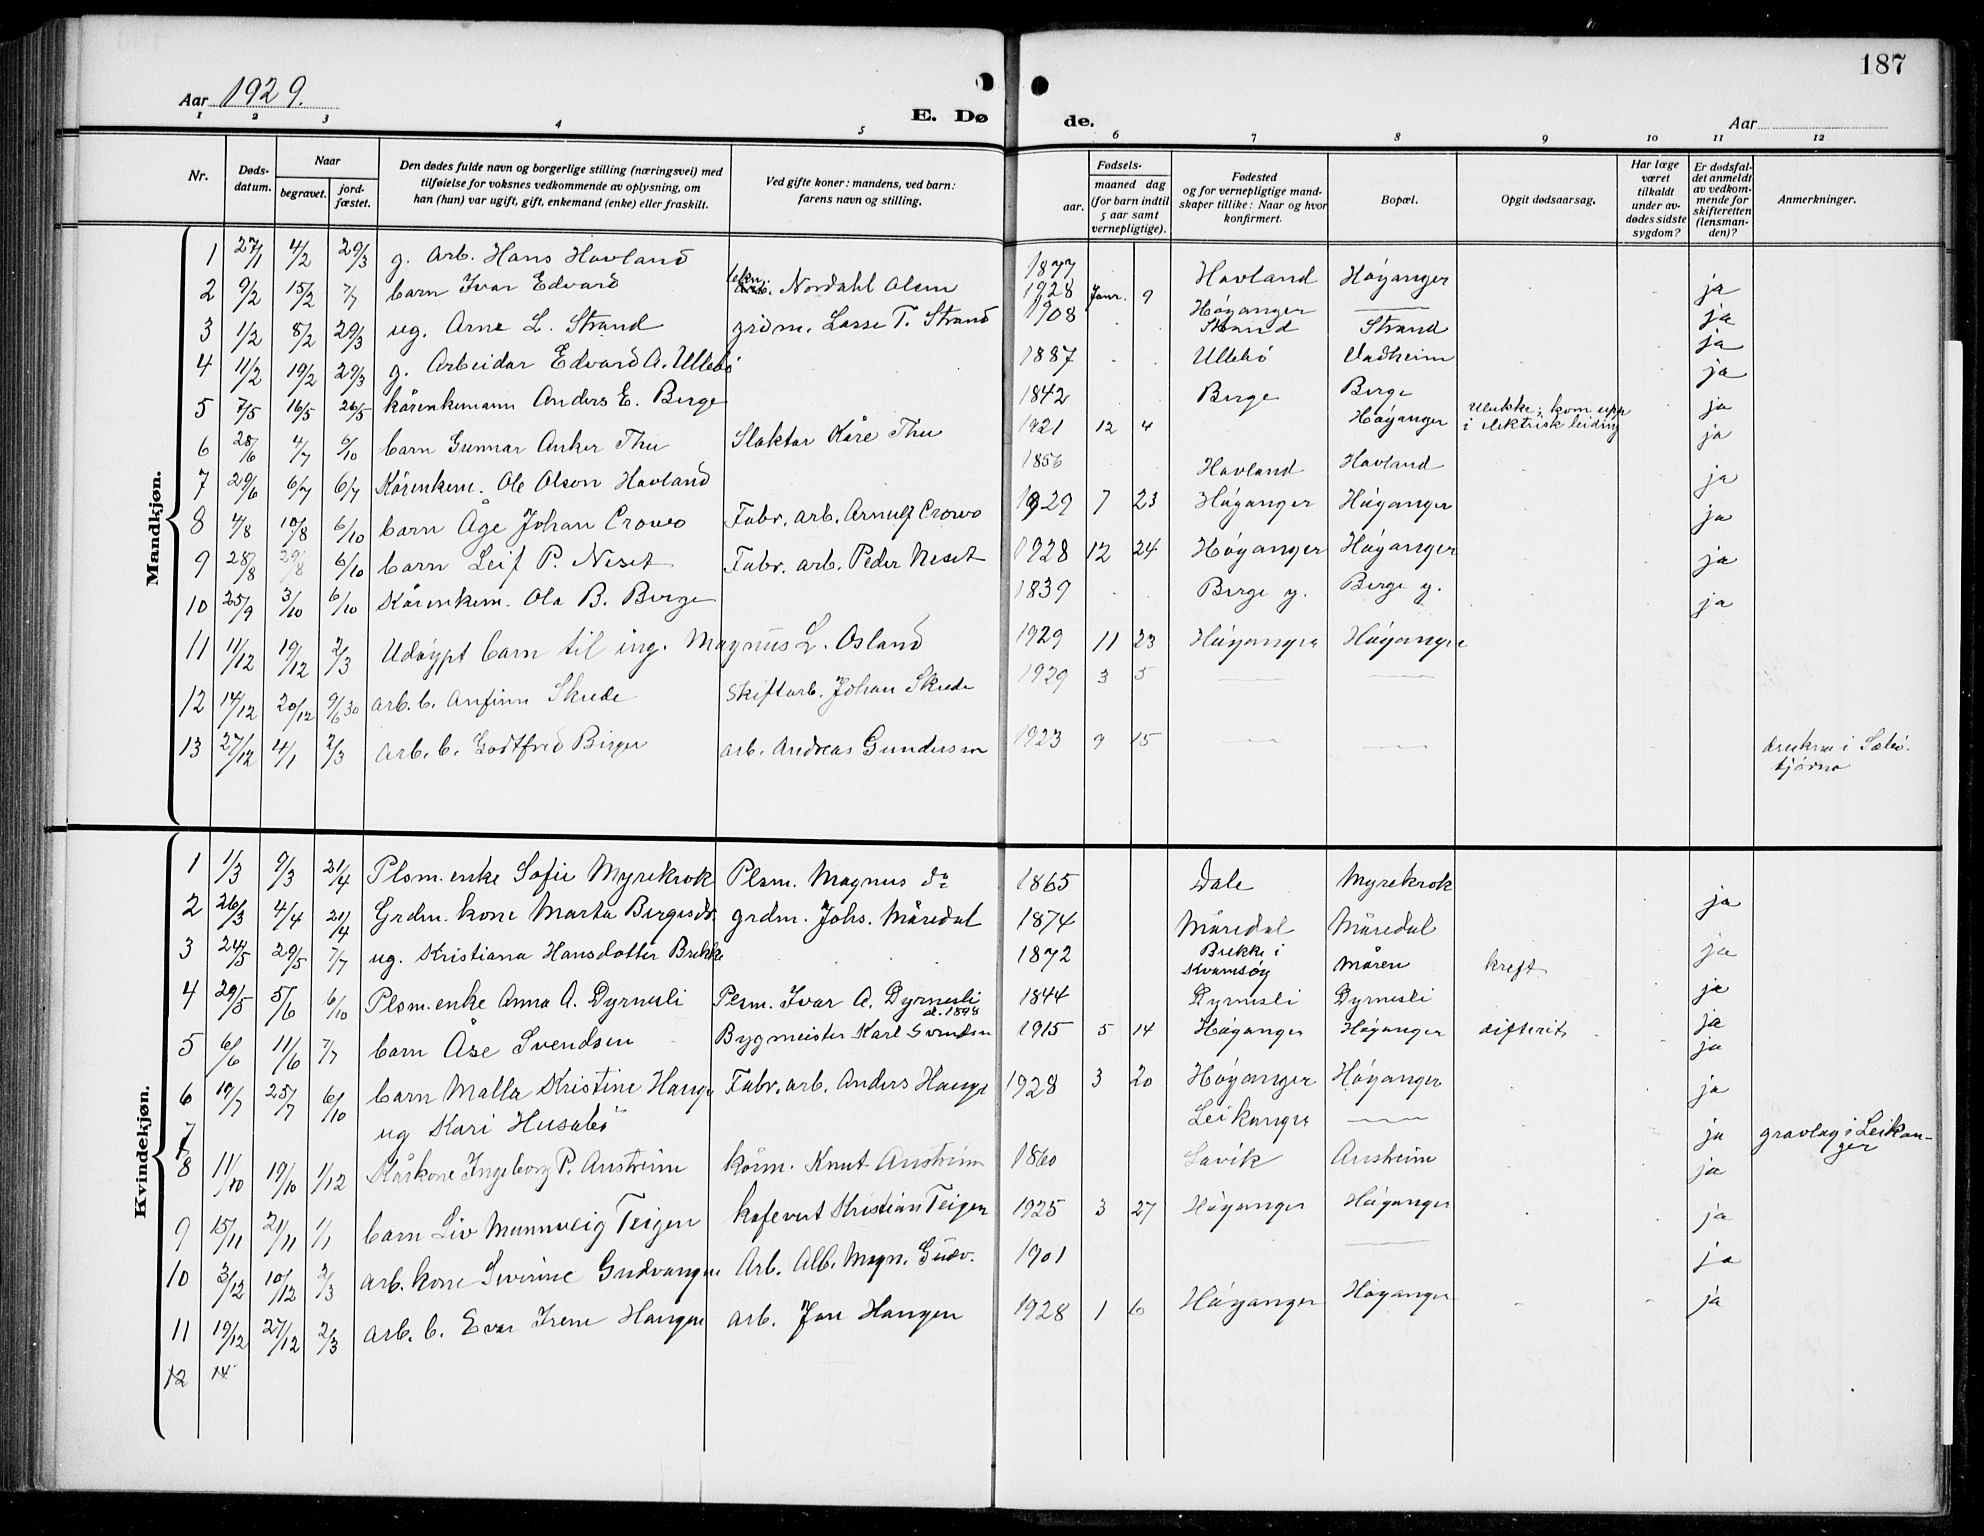 187
Aar 1929.
E. Døde.
Aar
1 2 3 4 5 6 7 8 9 10 11 12
Nr.
Døds-datum.
Naar
begravet.
jord-fæstet.
Den dødes fulde navn og borgerlige stilling (næringsvei) med
tilføielse for voksnes vedkommende av oplysning, om
han (hun) var ugift, gift, enkemand (enke) eller fraskilt.
Ved gifte koner: mandens, ved barn:
farens navn og stilling.
Fødsels-
aar.
maaned dag
(for barn indtil
5 aar samt
vernepligtige).
Fødested
og for vernepligtige mand-
skaper tillike: Naar og hvor
konfirmert.
Bopæl.
Opgit dødsaarsag.
Har læge
været
tilkaldt
under av-
dødes sidste
sygdom?
Er dødsfal-
det anmeldt
av vedkom-
mende for
skifteretten
(lensman-
den)?
Anmerkninger.
Mandkjøn.
1 27/1 4/2 29/3 g. Arb. Hans Hovland 1877 Hovland Höyanger ja
2 9/2 15/2 7/7 barn Ivar Edvard Nordahl Olsen 1928 Janr. 9 Höyanger — ja
3 1/2 8/2 29/3 ug. Arne L. Strand grdm. Lasse T. Strand 1908 Strand Strand ja
4 11/2 19/2 29/3 g. Arbeidar Edvard A. Ullebö 1887 Ullebö Vadheim ja
5 7/5 16/5 26/5 kårenkemann Anders E. Berge 1842 Berge Berge ja
6 28/6 4/7 6/10 barn Gunnar Anker Thu Slaktar Kåre Thu 1921 12 4 Höyanger Ulukke; kom upp i elektrisk leidning ja
7 29/6 6/7 6/7 Kårenkem. Ole Olson Hovland 1856 Hovland Hovland ja
8 4/8 10/8 6/10 barn Åge Johan Crowo Fabr. arb. Arnulf Crowo 1929 7 23 Höyanger Höyanger ja
9 28/8 29/8 6/10 barn Leif P. Neset Fabr. arb. Peder Neset 1928 12 24 Höyanger Höyanger ja
10 25/9 3/10 6/10 Kårenkem. Ola B. Berge 1839 Berge y. Berge y. ja
11 11/12 19/12 2/3 Udöypt barn til ing. Magnus L. Osland 1929 11 23 Höyanger Höyanger
12 14/12 20/12 9/6 30 arb. b. Anfinn Skrede Skiftarb. Johan Skrede 1929 3 5 — —
13 27/12 4/1 2/3 arb. b. Godtfred Birger arb. Andreas Gundersen 1923 9 15 — — drukna i Sæbö-
tjörna
Kvindekjøn.
1 1/3 9/3 21/4 Plsm. enke Sofie Myrekrok Plsm. Magnus do 1865 Dale Myrekrok ja
2 26/3 4/4 21/4 Grdm. kone Marta Bergesdr. grdm. Johs. Måredal 1874 Måredal Måredal ja
3 24/5 29/5 7/7 ug. Kristiana Hansdotter Brekke 1872 Brekke i Kvamsöy Måren kreft ja
4 29/5 5/6 6/10 Plsm. enke Anna A. Dyrnesli Plsm. Ivar A. Dyrnesli d. 1898 1844 Dyrnesli Dyrnesli ja
5 6/6 11/6 7/7 barn Åse Svendsen Bygmeister Karl Svendsen 1915 5 14 Höyanger Höyanger difterit ja
6 19/7 25/7 6/10 barn Malla Kristine Hauge Fabr. arb. Anders Hauge 1928 3 20 Höyanger Höyanger ja
7 ug Kari Husabö Leikanger — ja gravlag i Leikan-
ger
8 11/10 19/10 1/12 Kårkone Ingeborg P. Austreim kårm. Knut Austreim 1860 Lavik Austreim ja
9 15/11 21/11 1/1 barn Liv Munnveig Teigen kafevert Kristian Teigen 1925 3 27 Höyanger Höyanger ja
10 3/12 10/12 2/3 arb. kone Severine Gudvangen Arb. Alb. Magn. Gudv. 1901 — ja
11 19/12 27/12 2/3 arb. b. Evar Irene Haugen arb. Jon Haugen 1928 1 6 Höyanger Höyanger ja
12 14